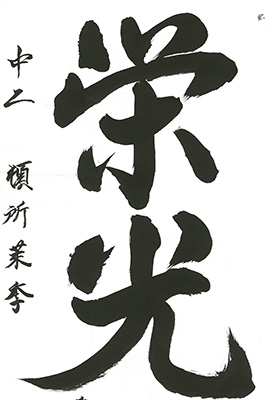 栄光
中二 頓所茉李